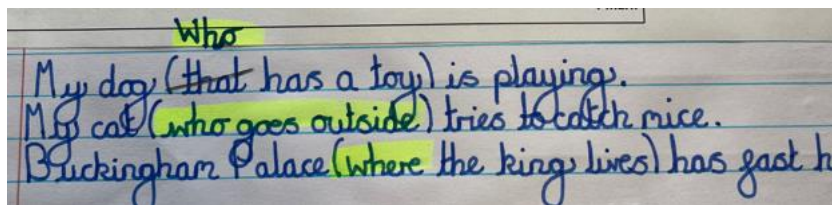 Who
My dog (that has a toy) is playing.
My cat (who goes outside) tries to catch mice.
Buckingham Palace (where the king lives) has gast h